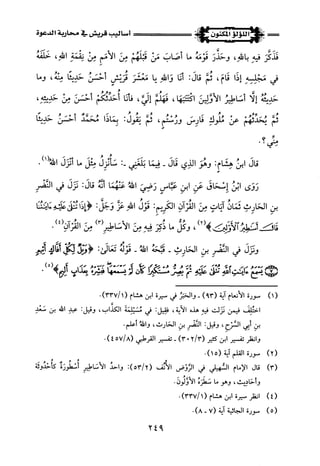 اللؤلؤ المكنون
أساليب قريش في محاربة الدعوة
فذكّر فيه بالله، وحذّر قومه ما أصاب من قبلهم من الأمم من نقمة الله، خلفه
في مجلسه إذا قام، ثم قال: أنا والله يا معشر قريش أحسن حديثًا منه، وما
حديثه إلا أساطير الأولين اكتتبها، فهلم إليّ، فأنا أحدثكم أحسن من حديثه،
ثم يحدثهم عن ملوك فارس ورستم، ثم يقول: بماذا محمد أحسن حديثًا
مني؟.
قال ابن هشام: وهو الذي قال ـ فيما بلغني ـ: سأنزل مثل ما أنزل الله(١).
روى ابن إسحاق عن ابن عباس رضي الله عنهما أنه قال: نزل في النضر
بن الحارث ثمان آيات من القرآن الكريم: قول الله عز وجل: ﴿إذا تتلى عليه آياتنا
قال أساطير الأولين﴾(٢)، وكل ما ذكر فيه من الأساطير(٣) من القرآن(٤).
ونزل في النضر بن الحارث ـ قبحه الله ـ قوله تعالى: ﴿ويل لكل أفاك أثيم
يسمع آيات الله تتلى عليه ثم يصر مستكبرا كأن لم يسمعها فبشره بعذاب أليم﴾(٥).
(١) سورة الأنعام آية (٩٣) ـ والخبر في سيرة ابن هشام (٣٣٧/١).
اختلف فيمن نزلت فيه هذه الآية، فقيل: في مسيلمة الكذاب، وقيل: عبد الله بن سعد
بن أبي السرح، وقيل: النضر بن الحارث، والله أعلم.
وانظر تفسير ابن كثير (٣٠٢/٣) ـ تفسير القرطبي (٤٥٧/٨).
(٢) سورة القلم آية (١٥).
(٣) قال الإمام السهيلي في الروض الأنف (٥٣/٢): واحد الأساطير أسطورة كأحدوثة
وأحاديث، وهو ما سطره الأولون.
(٤) انظر سيرة ابن هشام (٣٣٧/١).
(٥) سورة الجاثية آية (٧ ـ ٨).
٢٤٩